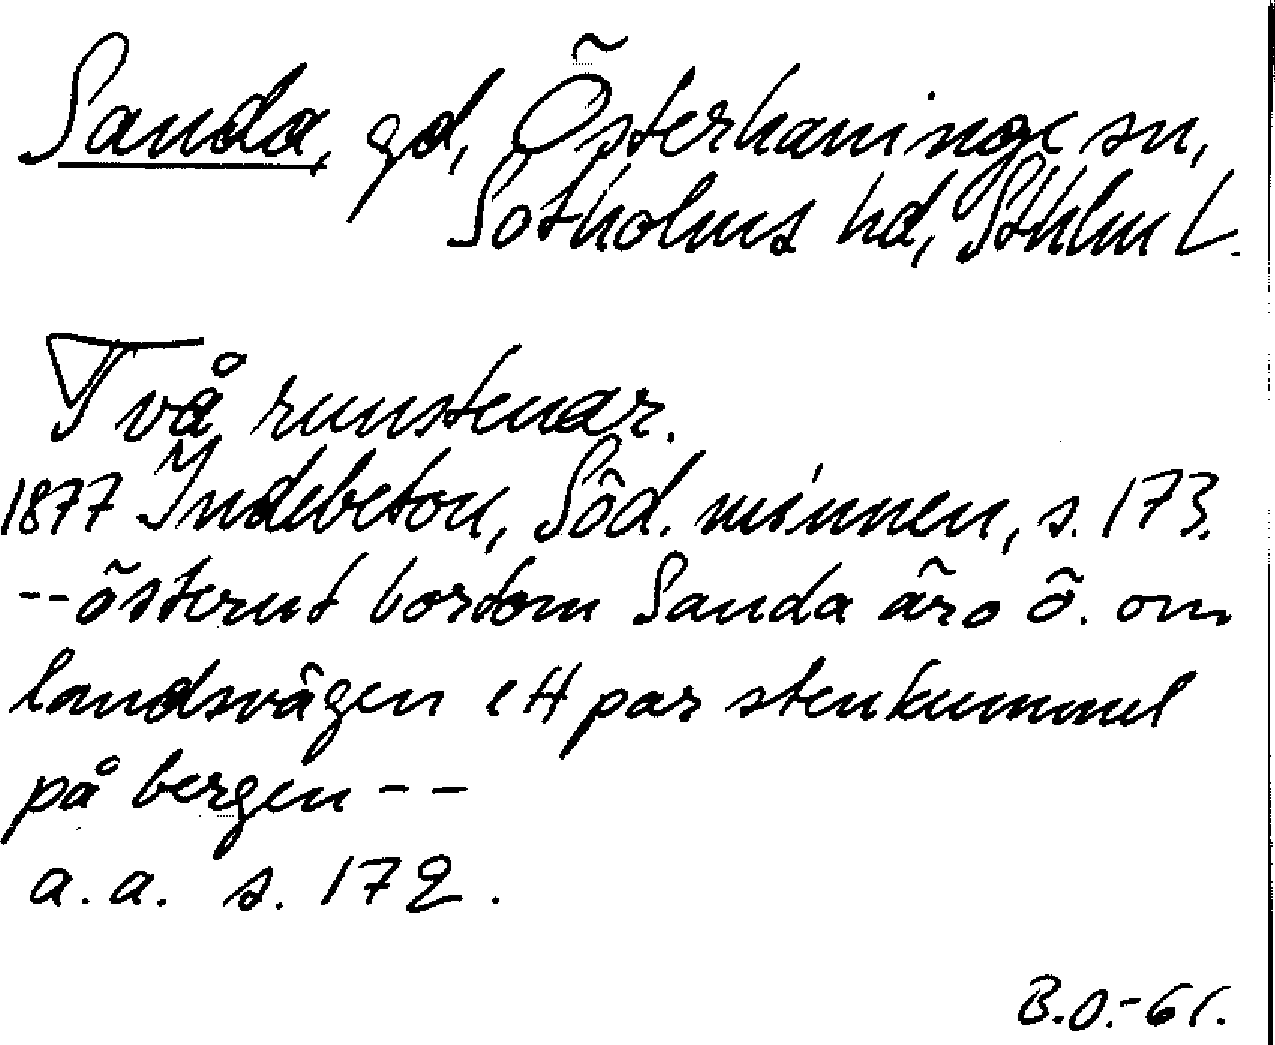 Sanda, gd, Österhaninge sn,
Sotholms hd, Sthlm L.
Två runstenar.
1877 Indebetou, Söd. minnen, s. 173.
--österut bortom Sanda äro ö. om
landsvägen ett par stenkummel
på bergen--
a.a. s. 172.
B.O.-61.